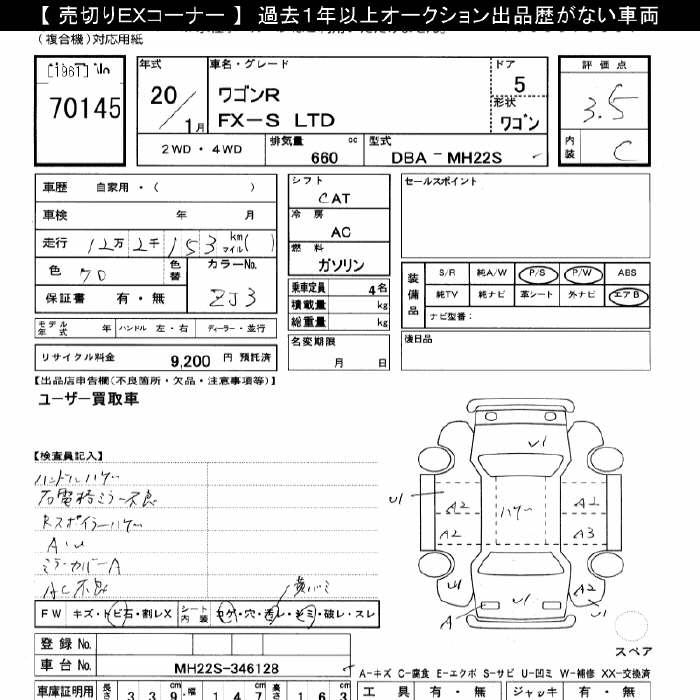 【 売切りEXコーナー 】 過去1年以上オークション出品歴がない車両
(複合機)対応用紙
70145
年式 20/1月
車名・グレード
ワゴンR
FX-S LTD
ドア 5
形状 ワゴン
評価点 3.5
内装 C
2WD・4WD
排気量 660 cc
型式 DBA-MH22S
車歴 自家用・( )
車検 年 月
走行 12万 2千 153 km マイル( )
色 色替
カラーNo. ZJ3
保証書 有・無
シフト CAT
冷房 AC
燃料 ガソリン
乗車定員 4名
積載量 kg
総重量 kg
名変期限 月 日
セールスポイント
装備品
S/R 純A/W P/S P/W ABS
純TV 純ナビ 革シート 外ナビ エアB
ナビ型番:
後日品
モデル年式 年 ハンドル 左・右 ディーラー・並行
リサイクル料金 9,200 円 預託済
【出品店申告欄(不良箇所・欠品・注意事項等)】
ユーザー買取車
【検査員記入】
ハンドルハゲー
右電格ミラー不良
Rスポイラーハゲー
A・U
ミラーカバーA
AC不良
U1
U1
A2
A2
ハゲー
A2
A3
U1
U1
A2
U1
A
スペア
FW キズ・トビ石・割レX シート内装 コゲ・穴・汚レ・シミ・破レ・スレ
登録 No.
車台 No. MH22S-346128
A-キズ C-腐食 E-エクボ S-サビ U-凹ミ W-補修 XX-交換済
車庫証明用 長さ 339cm 幅 147cm 高さ 163cm
工具 有・無 ジャッキ 有・無